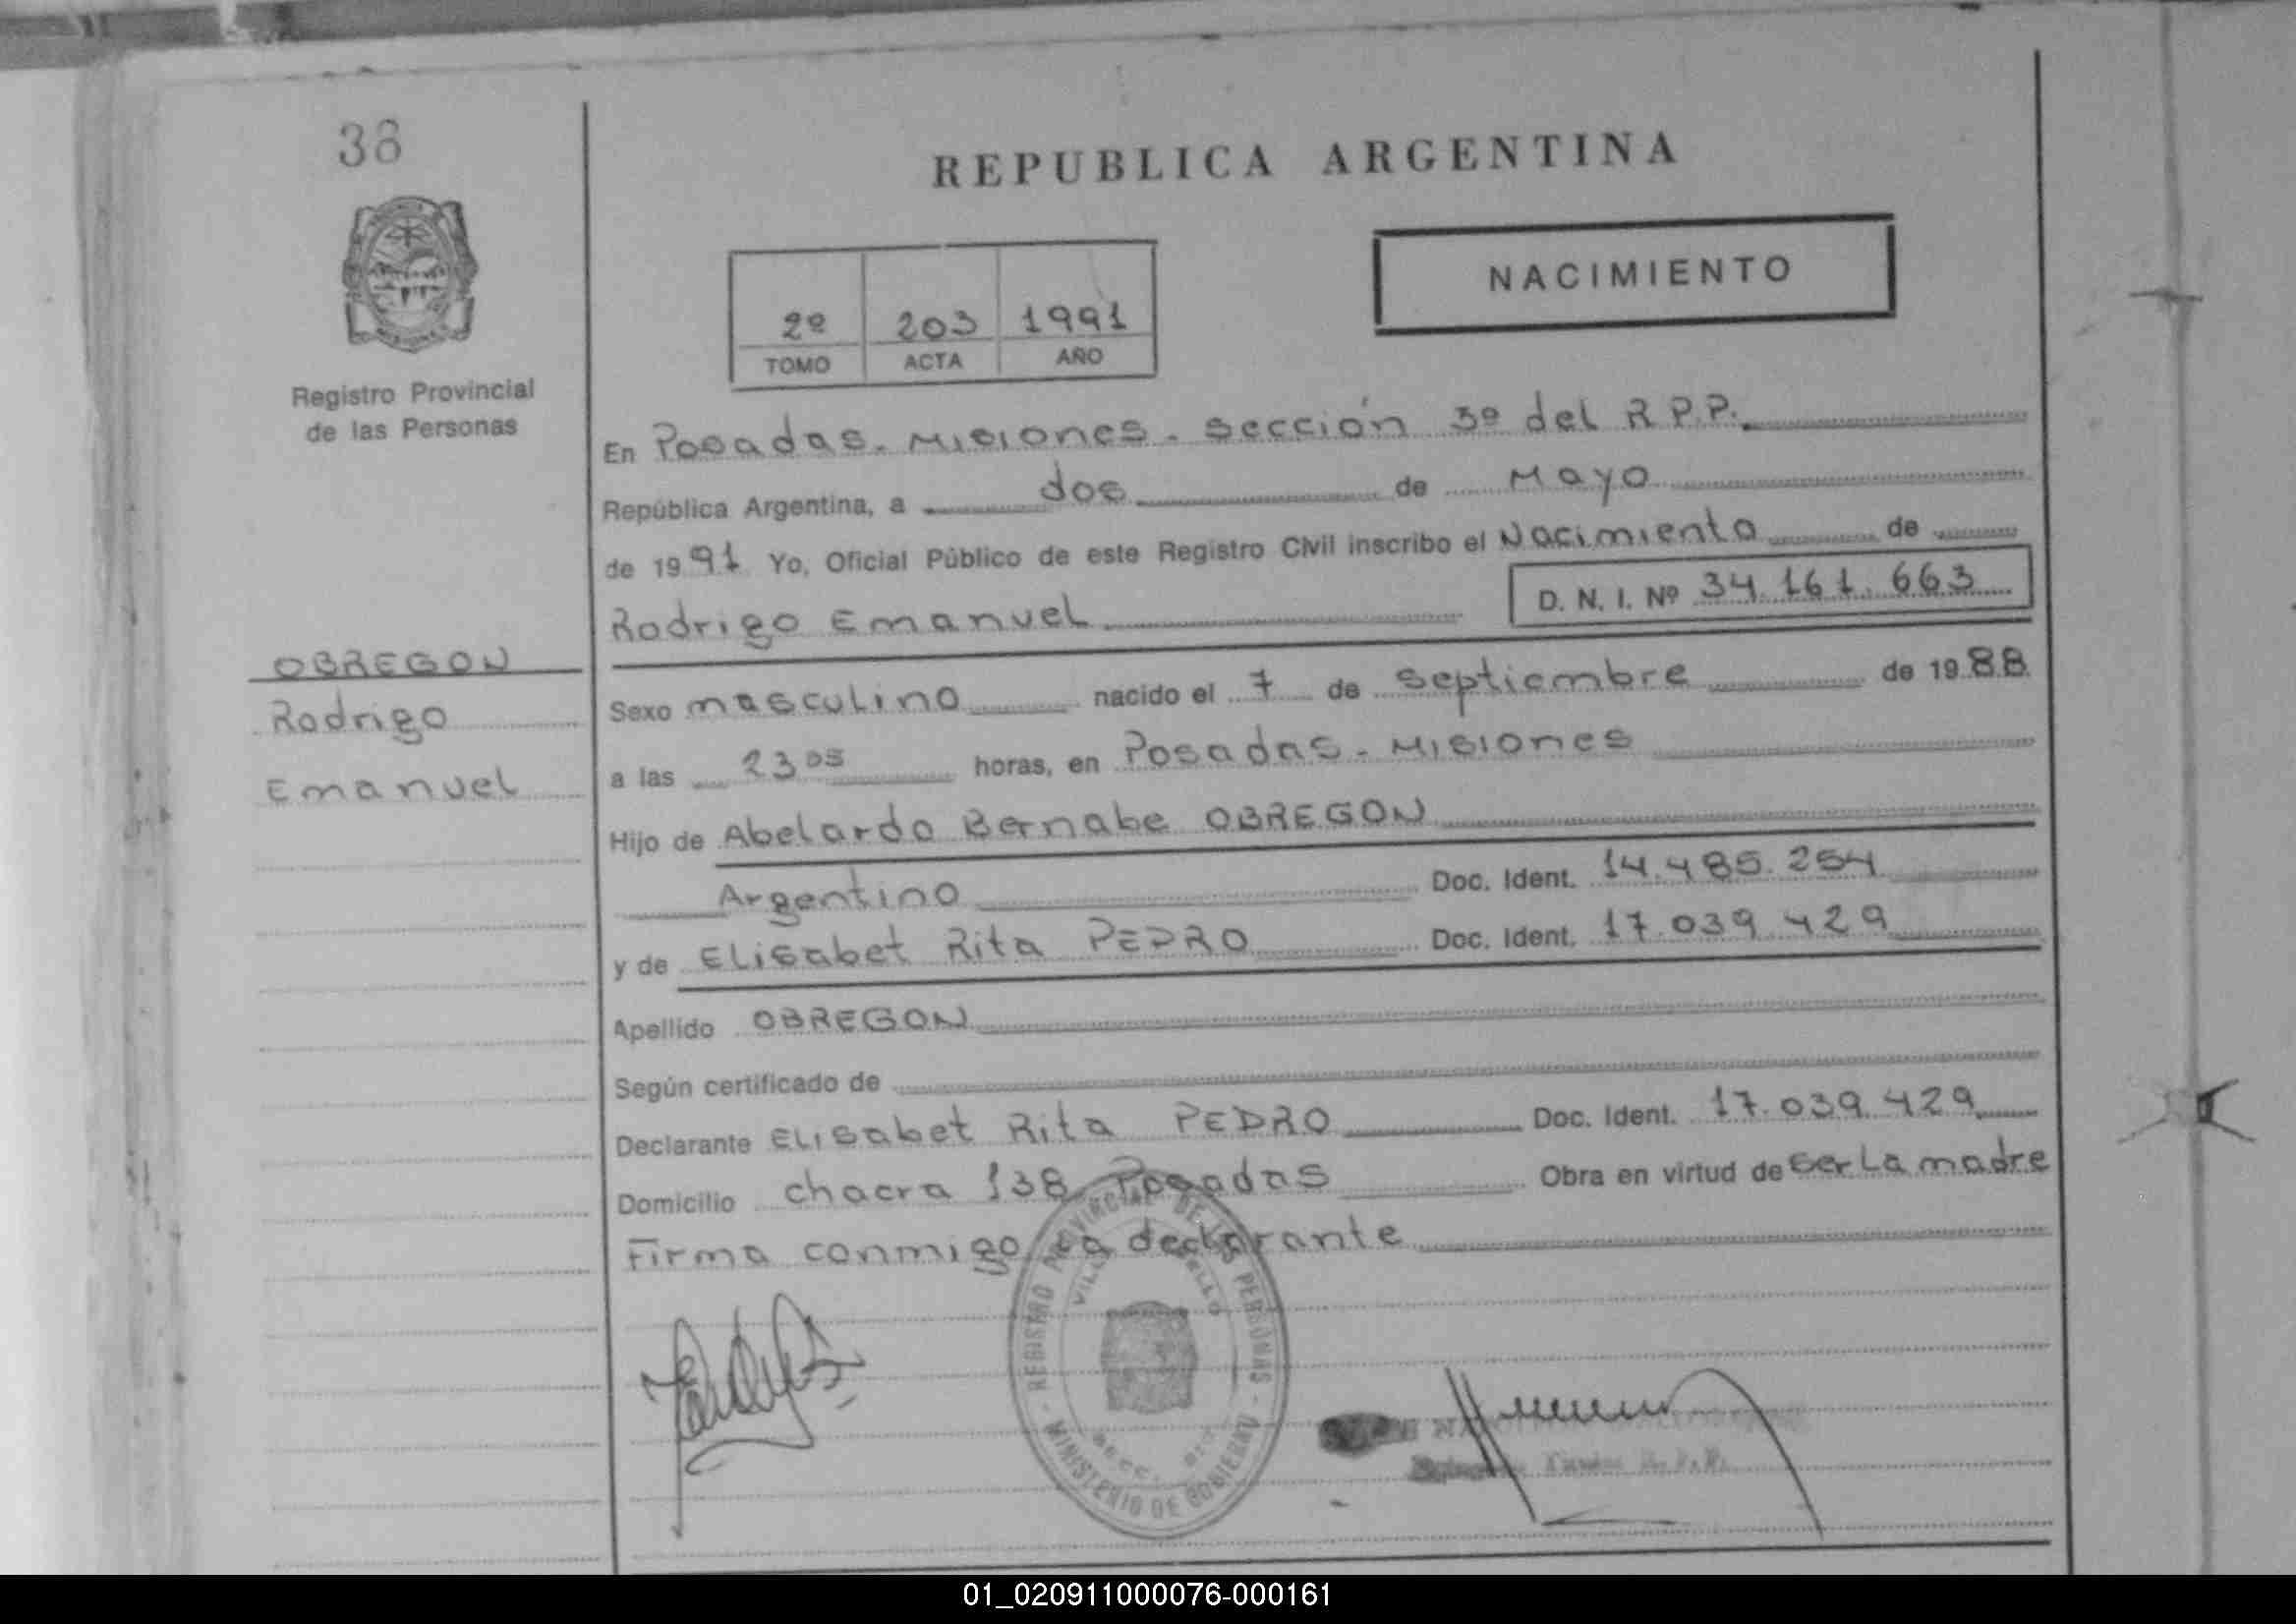 38
REPUBLICA ARGENTINA
NACIMIENTO
2º 203 1991
TOMO ACTA AÑO
Registro Provincial
de las Personas
En Posadas - Misiones - sección 3º del R.P.P.
República Argentina, a dos de Mayo
de 1991 Yo, Oficial Público de este Registro Civil inscribo el Nacimiento de
Rodrigo Emanuel D. N. I. Nº 34.161.663
OBREGON
Rodrigo
Emanuel
Sexo masculino nacido el 7 de Septiembre de 1988
a las 23 05 horas, en Posadas - Misiones
Hijo de Abelardo Bernabe OBREGON
Argentino Doc. Ident. 14.485.254
y de Elisabet Rita PEDRO Doc. Ident. 17.039.429
Apellido OBREGON
Según certificado de
Declarante Elisabet Rita PEDRO Doc. Ident. 17.039.429
Domicilio chacra 138 Posadas Obra en virtud de ser La madre
Firma conmigo La declarante
REGISTRO PROVINCIAL DE LAS PERSONAS
MINISTERIO DE GOBIERNO
01_020911000076-000161